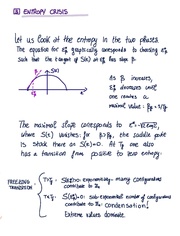 ENTROPY CRISIS
Let us look at the entropy in the two phases.
The equation for ε* graphically corresponds to choosing ε*
such that the tangent of S(ε) at ε* has slope β.
S(ε)
As β increases,
ε* decreases until
one reaches a
maximal value: βf = 1/Tf
The maximal slope corresponds to
where S(ε) vanishes: for β>βf, the saddle point
is stuck there as S(ε)=0. At Tf one also
has a transition from positive to zero entropy:
FREEZING
TRANSITION
T>Tf : S(ε*)>0: exponentially-many configurations
contribute to
T<Tf : S(ε*)=0: sub-exponential number of configurations
contribute to : condensation!
Extreme values dominate.